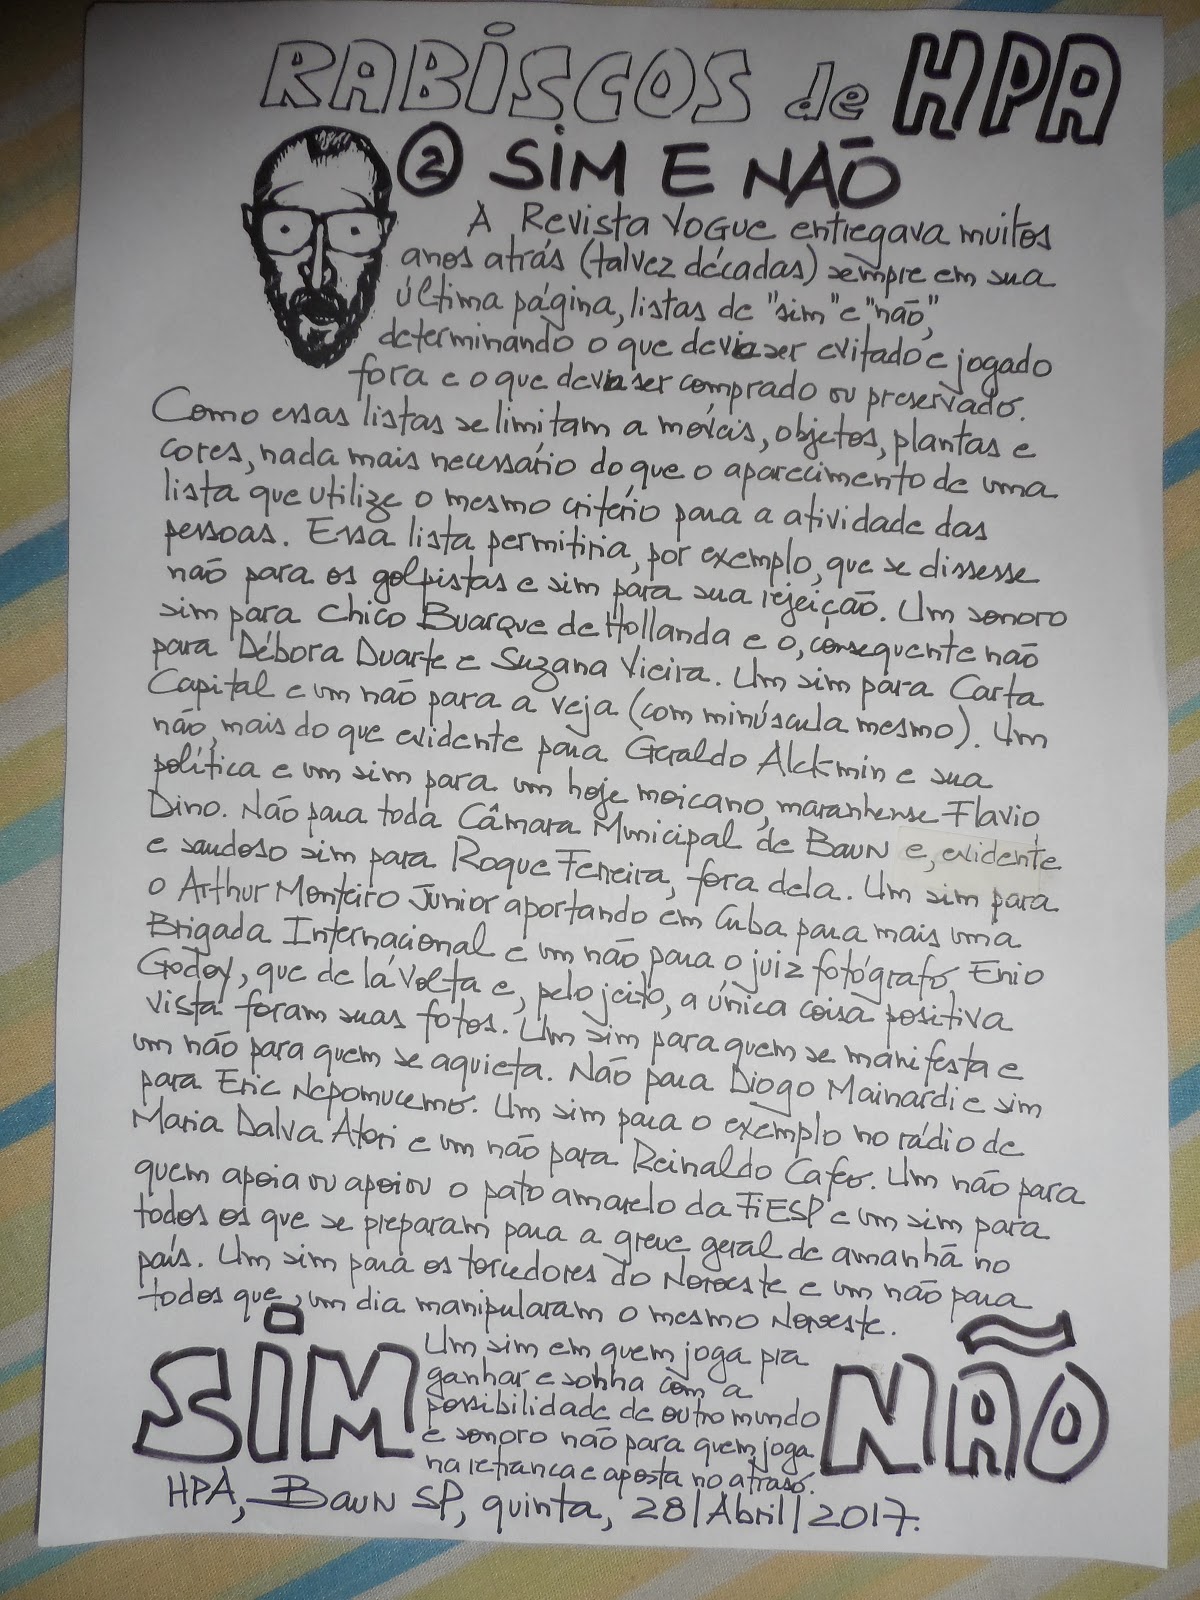 RABISCOS de HPA
② SIM E NÃO
A Revista VOGUE entregava muitos
anos atrás (talvez décadas) sempre em sua
última página, listas de "sim" e "não",
determinando o que devia ser evitado e jogado
fora e o que devia ser comprado ou preservado.
Como essas listas se limitam a móveis, objetos, plantas e
cores, nada mais necessário do que o aparecimento de uma
lista que utilize o mesmo critério para a atividade das
pessoas. Essa lista permitiria, por exemplo, que se dissesse
não para os golpistas e sim para sua rejeição. Um sonoro
sim para Chico Buarque de Hollanda e o, consequente não
para Débora Duarte e Suzana Vieira. Um sim para Carta
Capital e um não para a veja (com minúscula mesmo). Um
não, mais do que evidente para Geraldo Alckmin e sua
política e um sim para um hoje moicano, maranhense Flavio
Dino. Não para toda Câmara Municipal de Bauru e, evidente
e saudoso sim para Roque Ferreira, fora dela. Um sim para
o Arthur Monteiro Junior aportando em Cuba para mais uma
Brigada Internacional e um não para o juiz fotógrafo Enio
Godoy, que de lá volta e, pelo jeito, a única coisa positiva
vista foram suas fotos. Um sim para quem se manifesta e
um não para quem se aquieta. Não para Diogo Mainardi e sim
para Eric Nepomucemo. Um sim para o exemplo no rádio de
Maria Dalva Atori e um não para Reinaldo Cafeo. Um não para
quem apoia ou apoiou o pato amarelo da FIESP e um sim para
todos os que se preparam para a greve geral de amanhã no
país. Um sim para os torcedores do Noroeste e um não para
todos que, um dia manipularam o mesmo Noroeste.
SIM
Um sim em quem joga pra
ganhar e sonha com a
possibilidade de outro mundo
e sonoro não para quem joga
na retranca e aposta no atraso.
NÃO
HPA, Bauru SP, quinta, 28/Abril/2017.